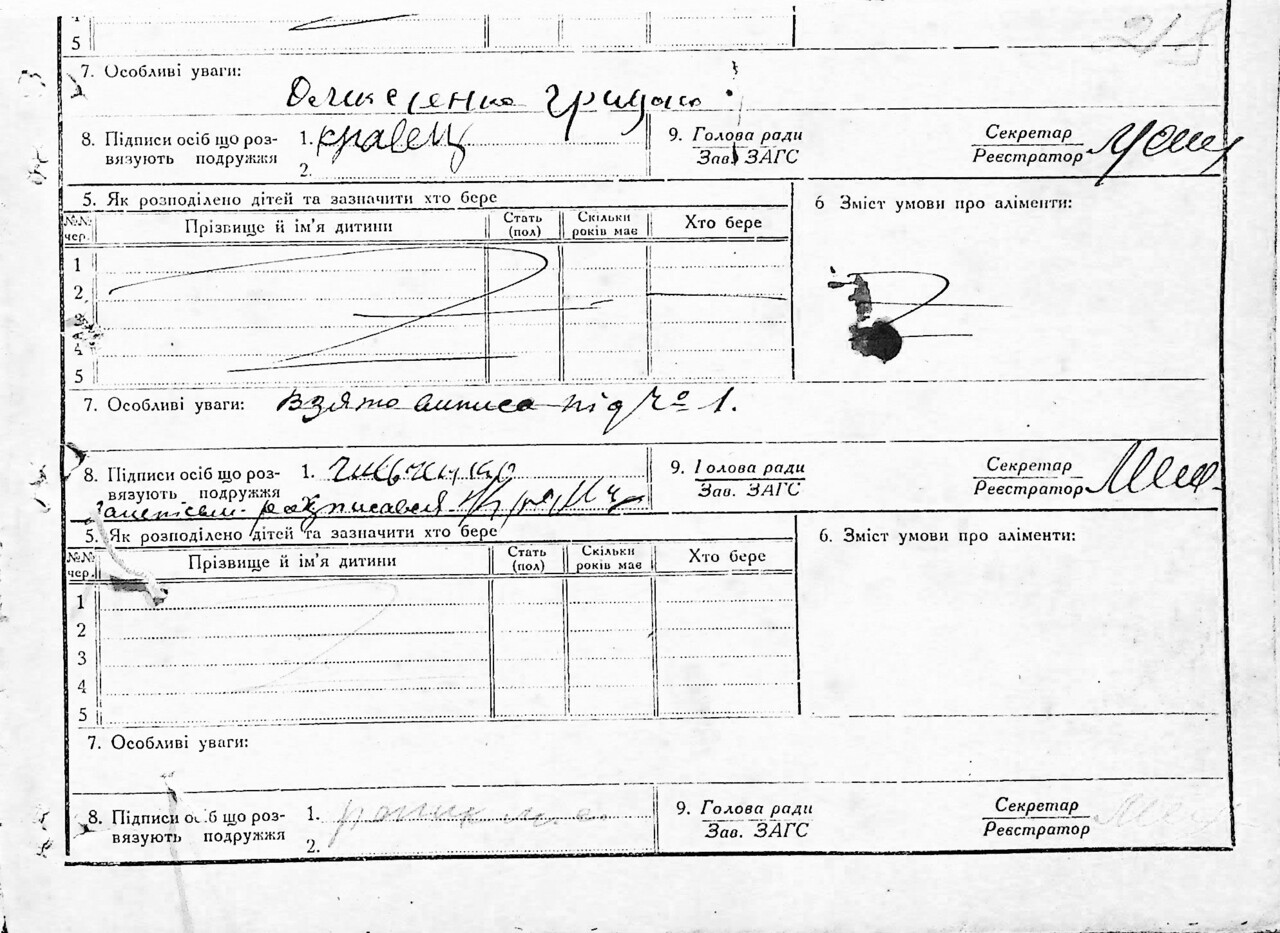 218
5
7. Особливі уваги:
8. Підписи осіб що роз-
вязують подружжя
1. Кравец
2.
9. Голова ради
Зав. ЗАГС
Секретар
Реєстратор
5. Як розподілено дітей та зазначити хто бере
№№ чер. Прізвище й ім'я дитини Стать (пол) Скільки років має Хто бере
1
2
3
4
5
6 Зміст умови про аліменти:
7. Особливі уваги: Взято виписа під № 1.
8. Підписи осіб що роз-
вязують подружжя
1.
9. Голова ради
Зав. ЗАГС
Секретар
Реєстратор
5. Як розподілено дітей та зазначити хто бере
№№ чер. Прізвище й ім'я дитини Стать (пол) Скільки років має Хто бере
1
2
3
4
5
6. Зміст умови про аліменти:
7. Особливі уваги:
8. Підписи осіб що роз-
вязують подружжя
1.
2.
9. Голова ради
Зав. ЗАГС
Секретар
Реєстратор